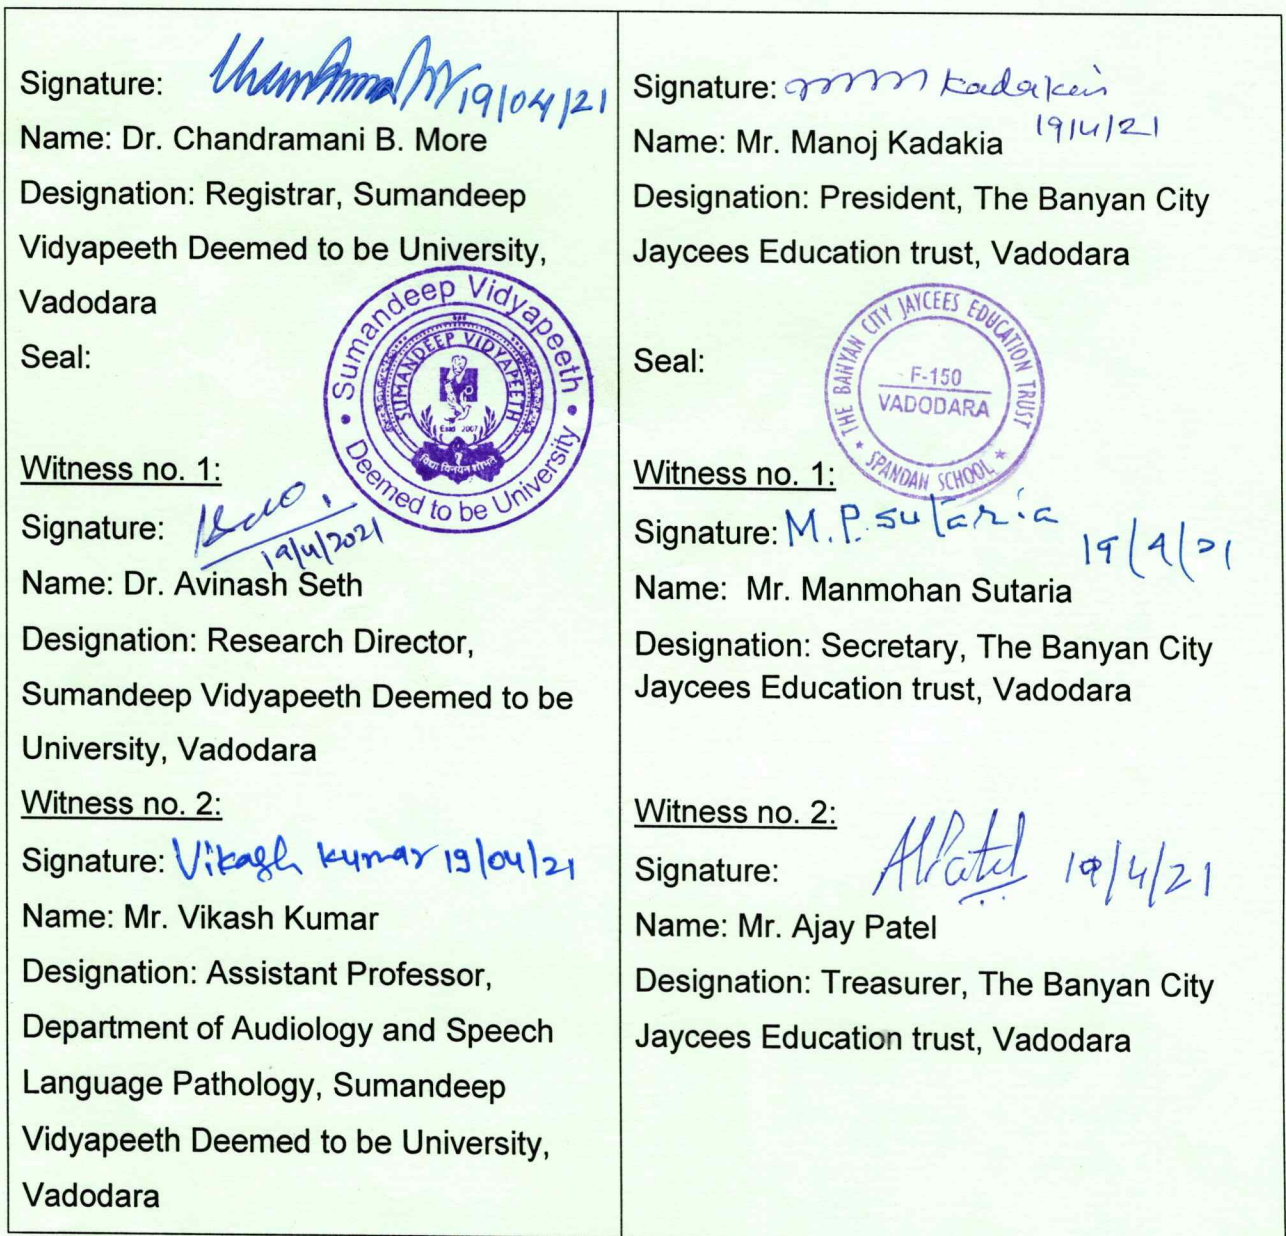 Signature: 19/04/21
Name: Dr. Chandramani B. More
Designation: Registrar, Sumandeep
Vidyapeeth Deemed to be University,
Vadodara
Seal:
Sumandeep Vidyapeeth
Deemed to be University
SUMANDEEP VIDYAPEETH
Estd. 2007
Witness no. 1:
Signature:
19/4/2021
Name: Dr. Avinash Seth
Designation: Research Director,
Sumandeep Vidyapeeth Deemed to be
University, Vadodara
Witness no. 2:
Signature: Vikash Kumar 19/04/21
Name: Mr. Vikash Kumar
Designation: Assistant Professor,
Department of Audiology and Speech
Language Pathology, Sumandeep
Vidyapeeth Deemed to be University,
Vadodara
Signature: Kadakia
19/4/21
Name: Mr. Manoj Kadakia
Designation: President, The Banyan City
Jaycees Education trust, Vadodara
Seal:
THE BANYAN CITY JAYCEES EDUCATION TRUST
F-150
VADODARA
* SPANDAN SCHOOL *
Witness no. 1:
Signature: M.P. Sutaria
19/4/21
Name: Mr. Manmohan Sutaria
Designation: Secretary, The Banyan City
Jaycees Education trust, Vadodara
Witness no. 2:
Signature: APatel 19/4/21
Name: Mr. Ajay Patel
Designation: Treasurer, The Banyan City
Jaycees Education trust, Vadodara